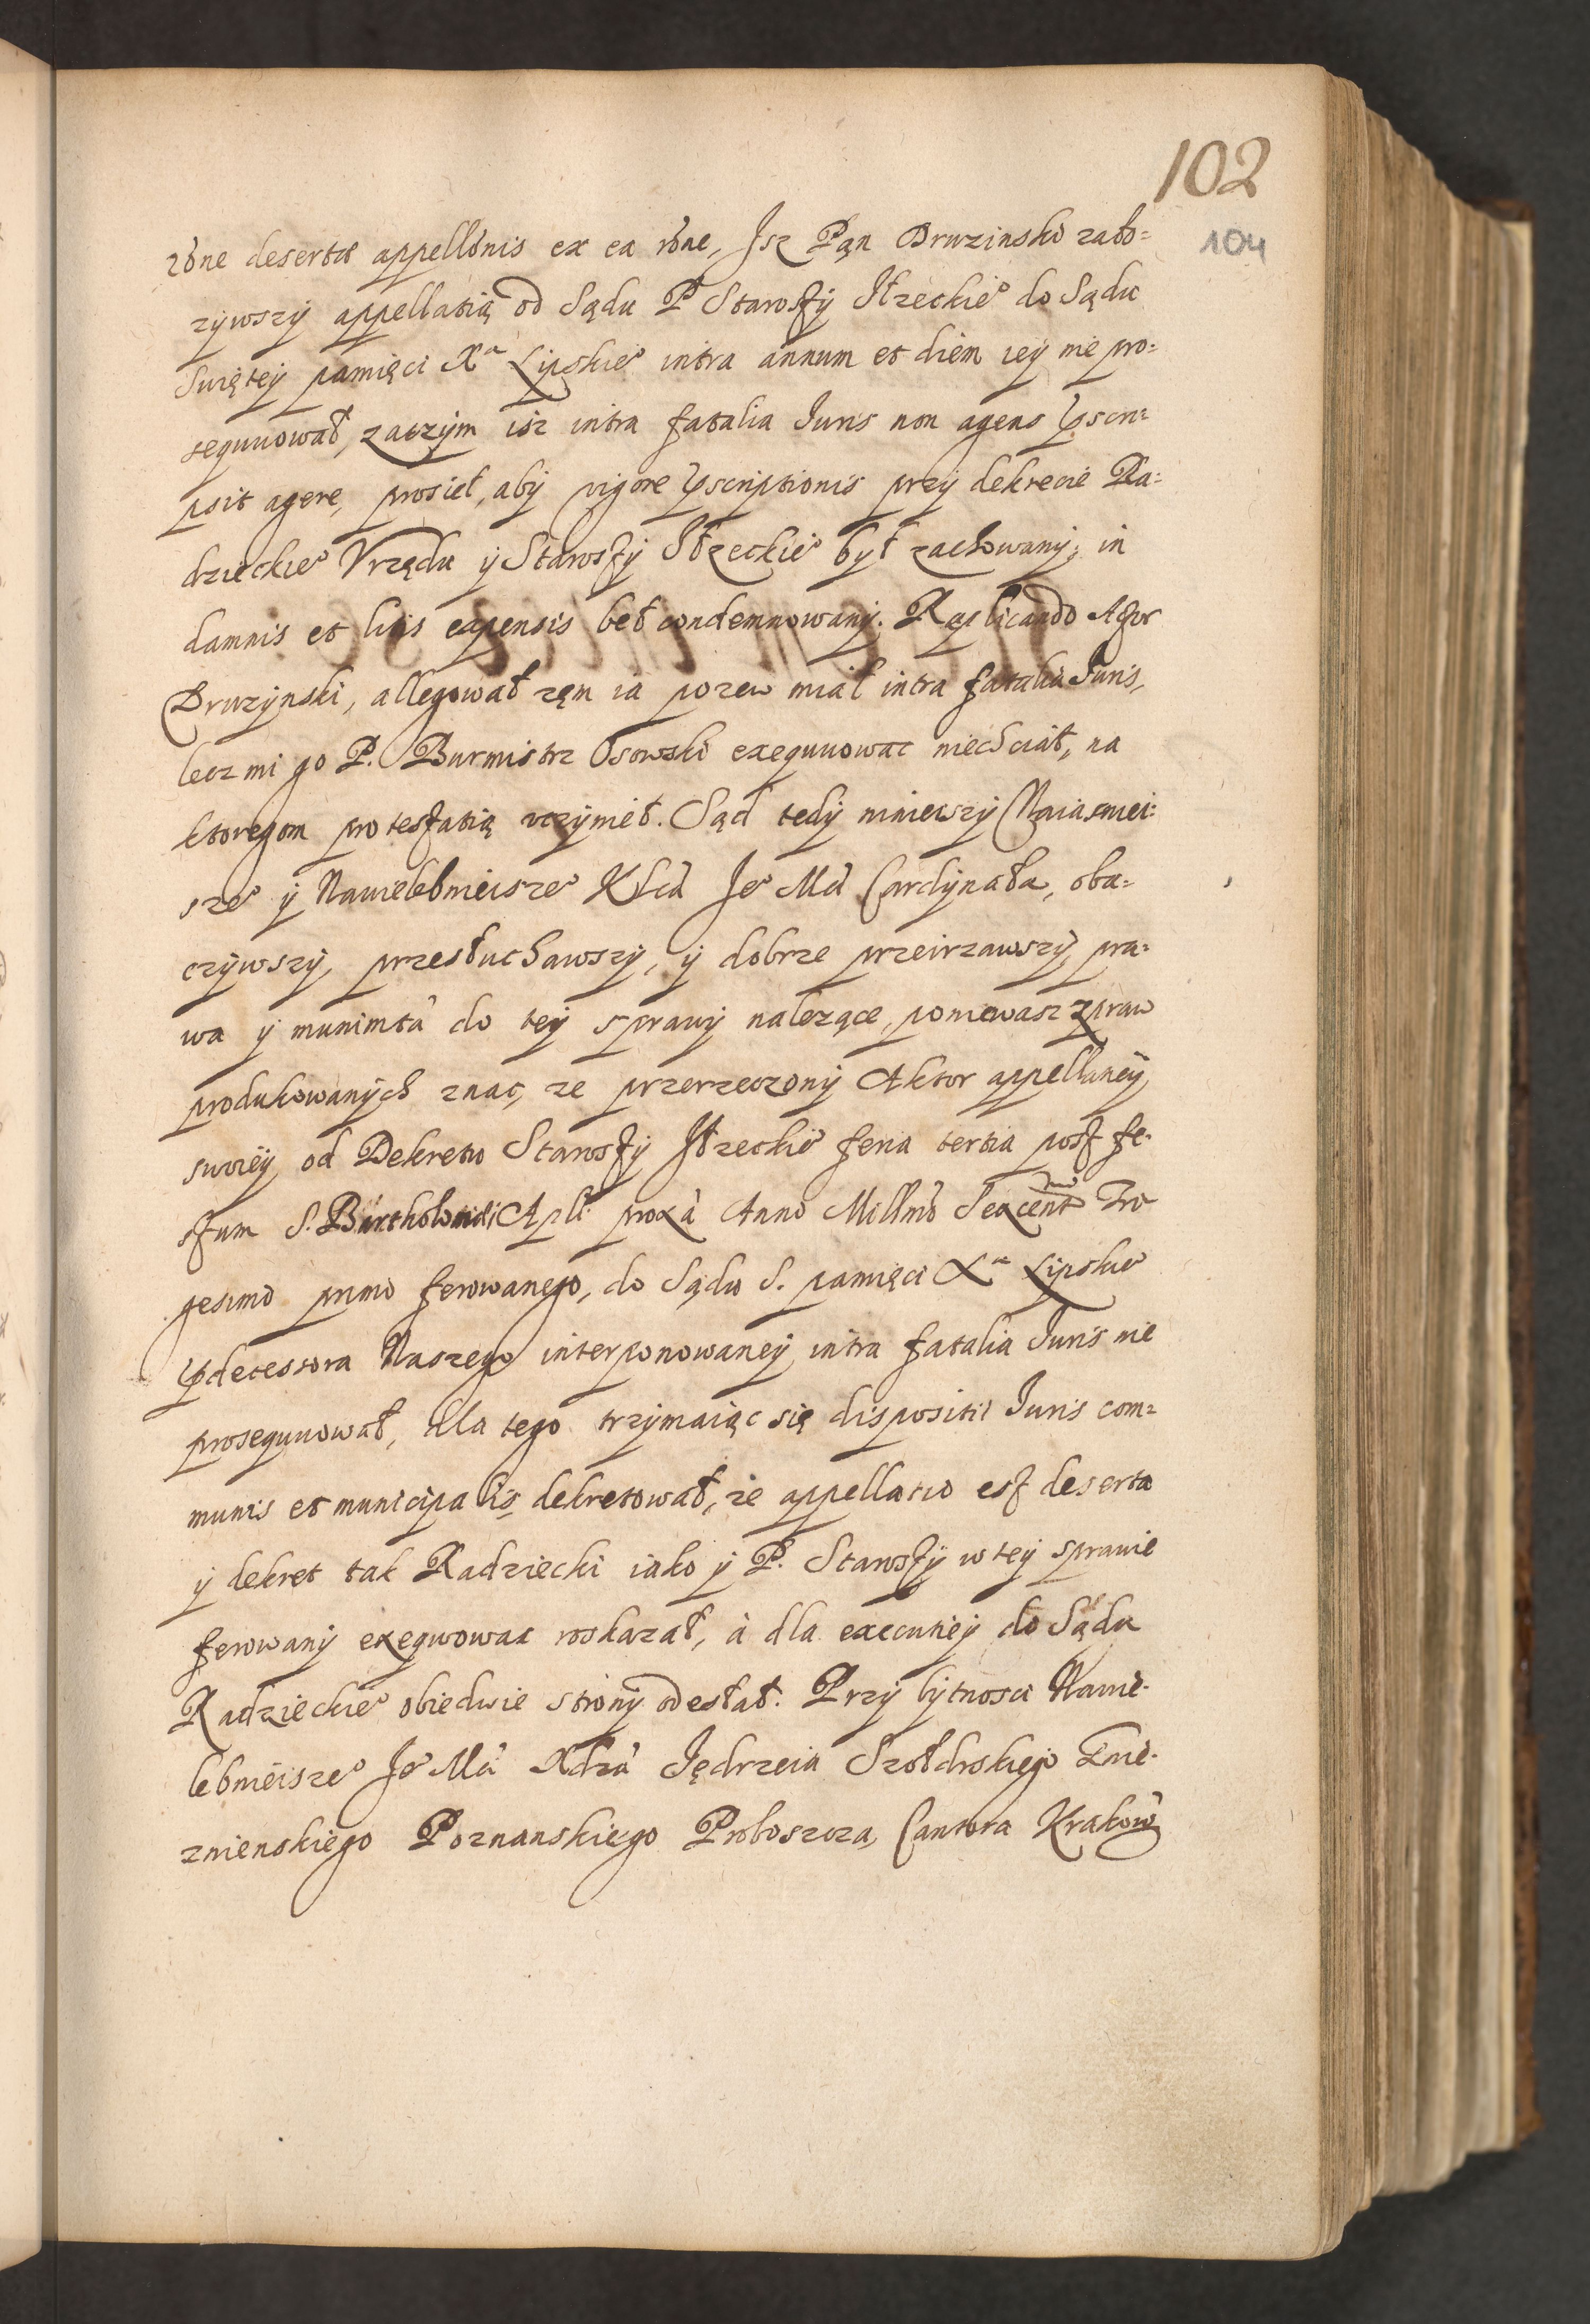 102
104
rõne desertæ appellõnis ex ea rõne, Isz Pąn Druzinski zało=
zywszy appellatią od Sądu P Starosty Iłzeckie° do Sądu
Swiętey pamięci Xa Lipskie° intra annum et diem iey nie pro=
sequuował, zaczym isz intra fatalia Iuris non agens pscri=
psit agere, prosieł, aby vigore pscriptionis przy dekrecie Ra=
dzieckie° Vrzędu y Starosty Iłzeckie° był zachowany, in
damnis et litis expensis beł condemnowany. Replicando Actor
Druzynski, allegował zęm ia pozew miał intra fatalia Iuris,
lecz mi go P. Burmistrz Osowski exequuowac niechciał, na
ktoregom protestatią vczynieł. Sąd tedy ninieszy Naiasniei=
sze° y Nawielebnieisze° Xcia Ie° Mci Cardynała, oba=
czywszy, przesłuchawszy, y dobrze przeirzawszy pra=
wa y munimta do tey sprawy nalezące, poniewasz z praw
produkowanych znac, ze przerzeczony Aktor appellaciey
swoiey od Dekretu Starosty Iłzeckie° feria tertia post fe=
stum S. Bartholomæi Apli proxa Anno Millmo Sexcentmo Tri=
gesimo primo ferowanego, do Sądu S. pamięci Xa Lipskie°
pdecessora Naszego interponowaney intra fatalia Iuris nie
prosequuował, dla tego trzymaiąc się dispositii Iuris com=
munis et municipalis, dekretował, ze appellatio est deserta
y dekret tak Radziecki iako y P. Starosty w tey sprawie
ferowany exequuowac roskazał, à dla executiey do Sądu
Radzieckie° obiedwie strony odesłał. Przy bytnosci Nawie=
lebnieisze° Ie° Mci Xdza Jędrzeia Szołdrskiego Gnie=
znienskiego Poznanskiego Proboszcza, Cantora Krakow